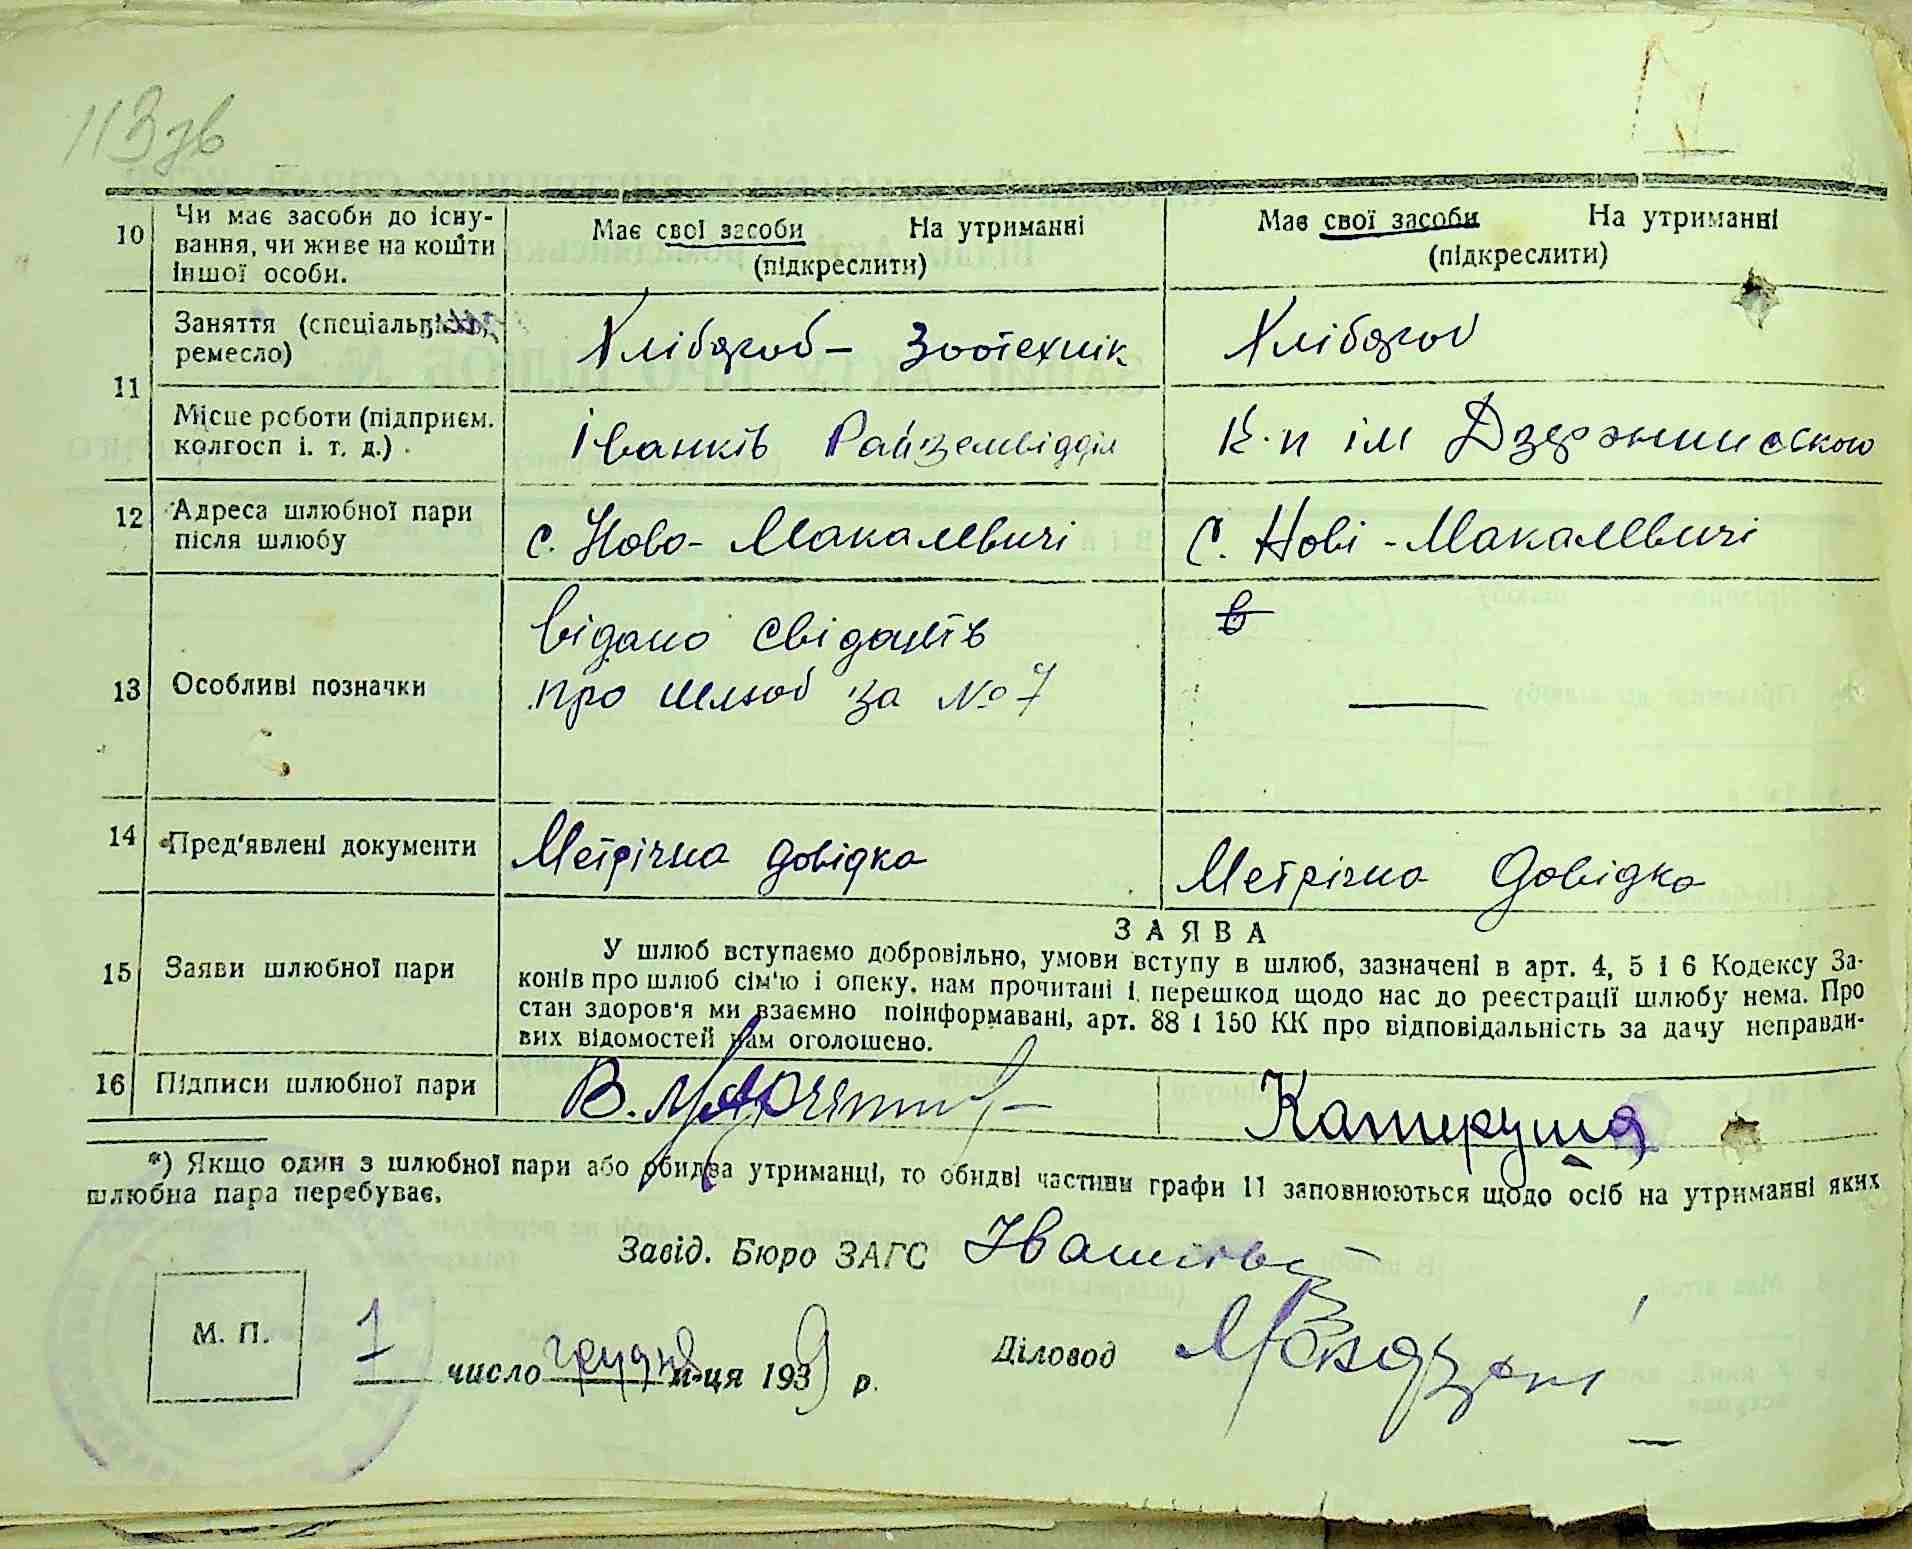 113 зв
10 Чи має засоби до існу-
вання, чи живе на кошти
іншої особи.
Має свої засоби На утриманні
(підкреслити)
Має свої засоби На утриманні
(підкреслити)
11 Заняття (спеціальність,
ремесло)
Хлібороб - Зоотехнік
Хлібороб
Місце роботи (підприєм.
колгосп і. т. д.)
Іванків Райземвідділ
К-п ім Дзержинського
12 Адреса шлюбної пари
після шлюбу
с. Ново-Макалевичі
С. Нові-Макалевичі
13 Особливі позначки
Відано свідоцтв
про шлюб за № 7
14 Пред'явлені документи
Метрічна довідка
Метрічна Довідка
15 Заяви шлюбної пари
ЗАЯВА
У шлюб вступаємо добровільно, умови вступу в шлюб, зазначені в арт. 4, 5 і 6 Кодексу За-
конів про шлюб сім'ю і опеку. нам прочитані і перешкод щодо нас до реєстрації шлюбу нема. Про
стан здоров'я ми взаємно поінформавані, арт. 88 і 150 КК про відповідальність за дачу неправди-
вих відомостей нам оголошено.
16 Підписи шлюбної пари
В.
*) Якщо один з шлюбної пари або обидва утриманці, то обидві частини графи 11 заповнюються щодо осіб на утриманні яких
шлюбна пара перебуває.
Завід. Бюро ЗАГС
М. П.
1 число грудня м-ця 1939 р.
Діловод